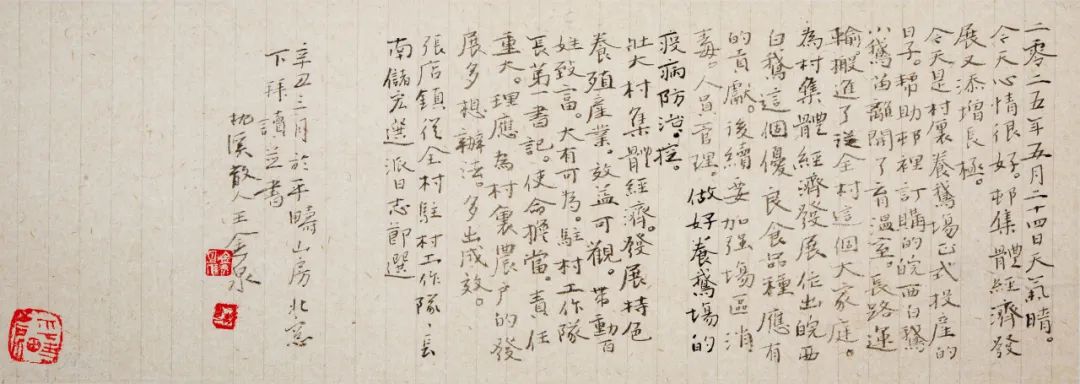 二零二五年五月二十四日天氣晴。
今天心情很好。邨集體經濟發
展又添增長極。
今天是村裏養鵝場正式投産的
日子。幫助邨裡訂購的皖西白鵝
小鵝苗離開了育温室。長路運
輸。搬進了從全村這個大家庭。
為村集體經濟發展作出皖西
白鵝這個優良食品種應有
的貢獻。後續要加强場區消
毒。人員管理。做好養鵝場的
疫病防治。控。
壯大村集體經濟。發展特色
養殖産業。效益可觀。带動百
姓致富。大有可為。駐村工作隊
長第一書記。使命擔當。責任
重大。理應為村裏農户的發
展多想辦法。多出成效。
張店鎮從全村駐村工作隊、長
南儲宏選派日志節選
辛丑三月於平疇山房北窓
下拜讀並書
溪散人王金泉